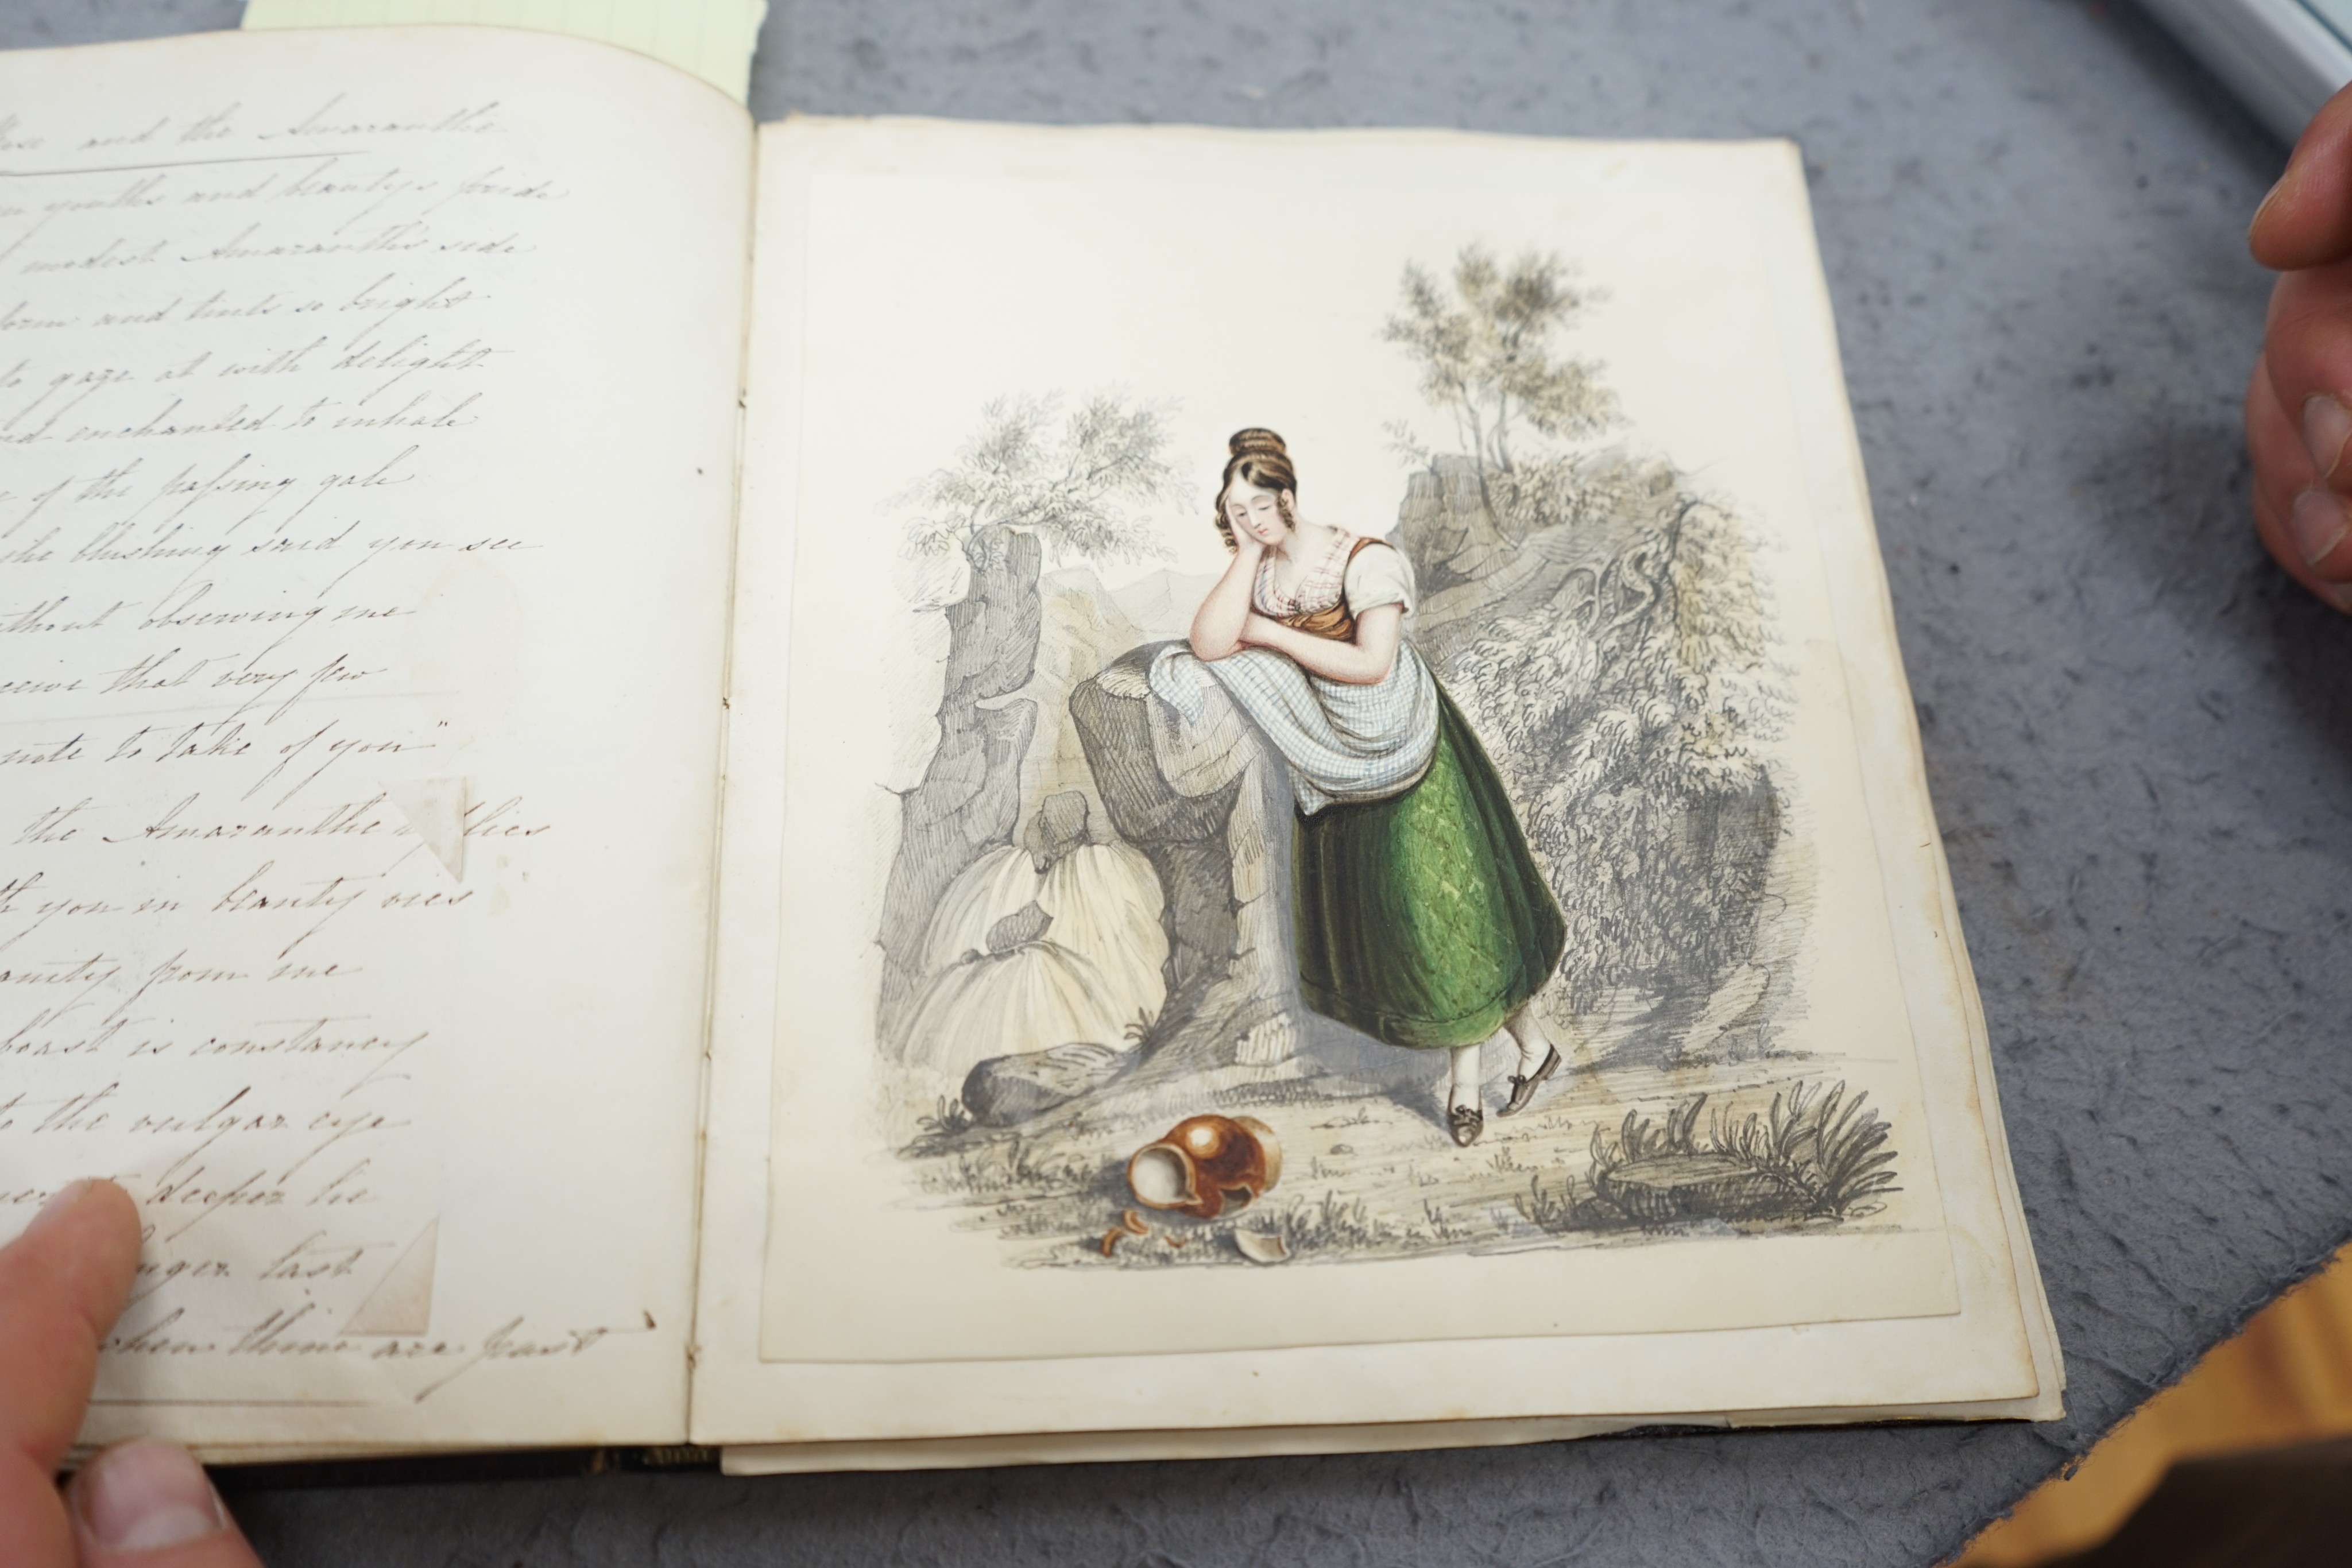 and the Amaranthe
youths and beautys pride
modest Amaranth's side
form and tints so bright
to gaze at with delight
enchanted to inhale
of the passing gale
she blushing said you see
without observing me
that very few
note to take of you"
the Amaranthe
you in beauty vies
from me
boast is constancy
to the vulgar eye
deeper lie
last
when thine are past